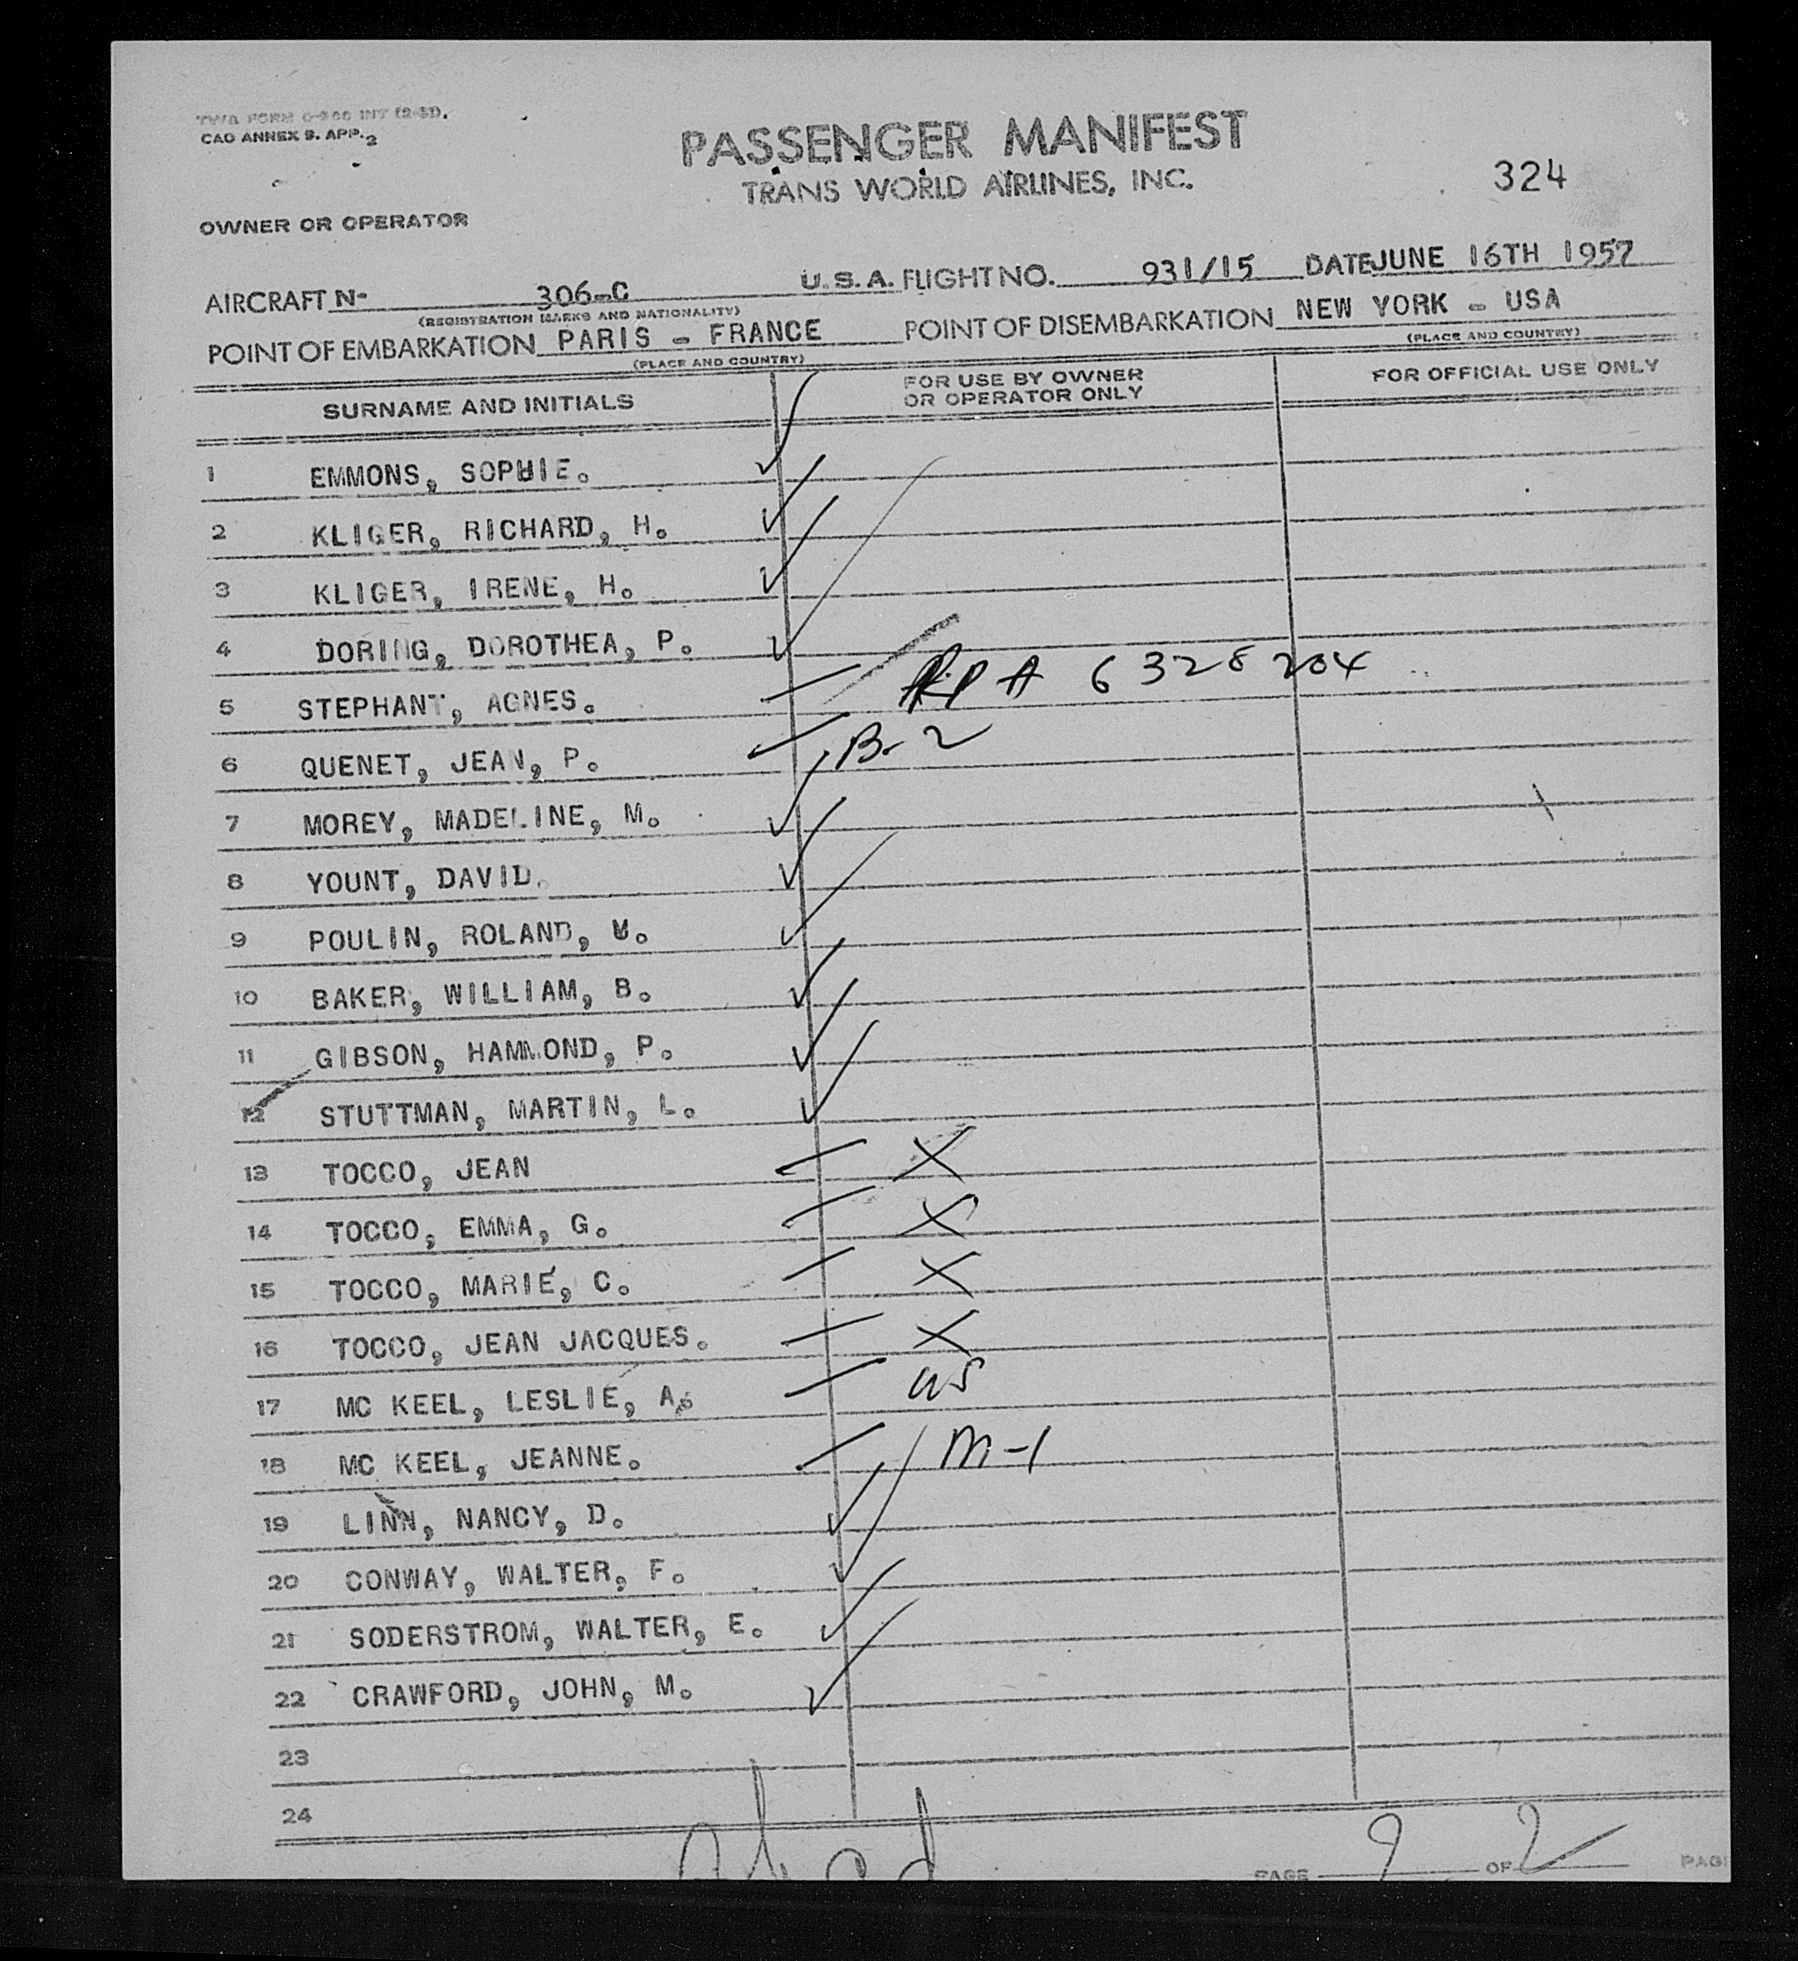 CAO ANNEX 9. APP. 2
PASSENGER MANIFEST
TRANS WORLD AIRLINES, INC.
324
OWNER OR OPERATOR
AIRCRAFT N- 306-C U.S.A. FLIGHT NO. 931/15 DATE JUNE 16TH 1957
(REGISTRATION MARKS AND NATIONALITY)
POINT OF EMBARKATION PARIS - FRANCE POINT OF DISEMBARKATION NEW YORK - USA
(PLACE AND COUNTRY) (PLACE AND COUNTRY)
SURNAME AND INITIALS FOR USE BY OWNER OR OPERATOR ONLY FOR OFFICIAL USE ONLY
1 EMMONS, SOPHIE.
2 KLIGER, RICHARD, H.
3 KLIGER, IRENE, H.
4 DORING, DOROTHEA, P.
5 STEPHANT, AGNES. RPA 6328204
6 QUENET, JEAN, P. B-2
7 MOREY, MADELINE, M.
8 YOUNT, DAVID.
9 POULIN, ROLAND,
10 BAKER, WILLIAM, B.
11 GIBSON, HAMMOND, P.
12 STUTTMAN, MARTIN, L.
13 TOCCO, JEAN X
14 TOCCO, EMMA, G. X
15 TOCCO, MARIE, C. X
16 TOCCO, JEAN JACQUES. X
17 MC KEEL, LESLIE, A. US
18 MC KEEL, JEANNE. M-1
19 LINN, NANCY, D.
20 CONWAY, WALTER, F.
21 SODERSTROM, WALTER, E.
22 CRAWFORD, JOHN, M.
23
24
PAGE OF 2